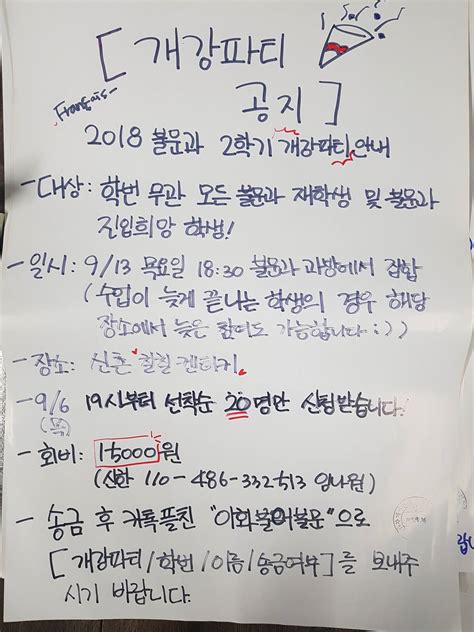 [개강파티
Français-
공지]
2018 불문과 2학기 개강파티 안내
- 대상: 학번 무관 모든 불문과 재학생 및 불문과
진입희망 학생!
- 일시: 9/13 목요일 18:30 불문과 과방에서 집합
(수업이 늦게 끝나는 학생의 경우 해당
장소에서 늦은 참여도 가능합니다 :))
- 장소: 신촌 "칠칠켄터키"
- 9/6 19시부터 선착순 20명만 신청받습니다.
(목)
- 회비: 15000원
(신한 110-486-332513 임나원)
- 송금 후 카톡플친 "이화불어불문"으로
[개강파티/학번/이름/송금여부]를 보내주
시기 바랍니다.